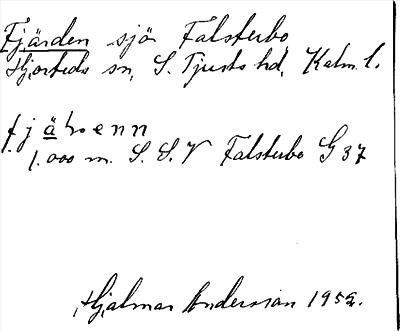 Fjärden sjö Falsterbo
Hjorteds sn, S. Tjusts hd, Kalm. l.
1.000 m. S. S. V Falsterbo G 37
Hjalmar Andersson 1952.